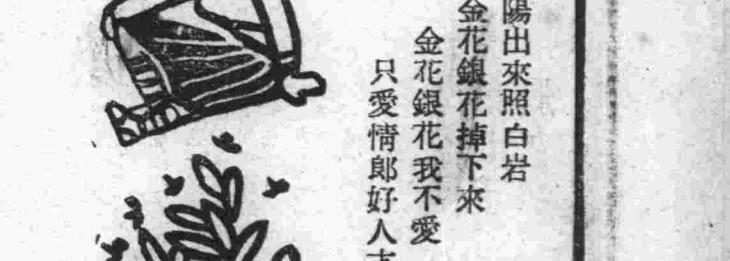 陽出來照白岩
金花銀花掉下來
金花銀花我不愛
只愛情郎好人